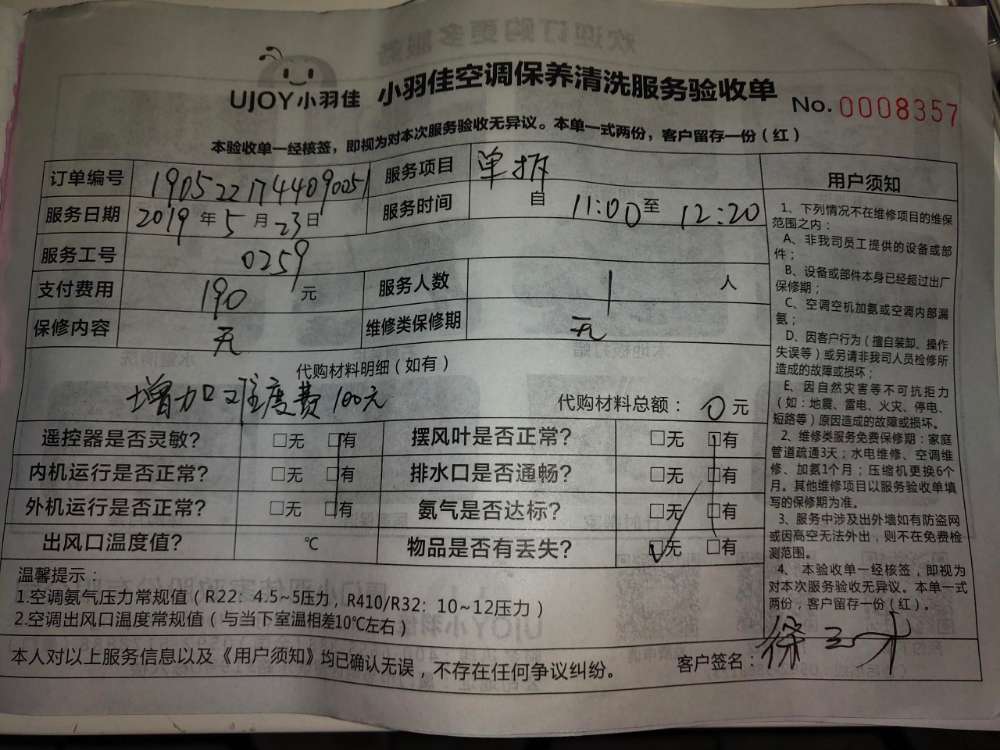 UJOY小羽佳 小羽佳空调保养清洗服务验收单 No. 0008357
本验收单一经核签，即视为对本次服务验收无异议。本单一式两份，客户留存一份（红）
订单编号 1905221744090051 服务项目 单拆
服务日期 2019 年 5 月 23 日 服务时间 自 11:00 至 12:20
服务工号 0259
支付费用 190 元 服务人数 1 人
保修内容 无 维修类保修期 无
代购材料明细（如有）
增加难度费100元 代购材料总额： 0 元
遥控器是否灵敏？ □无 □有 摆风叶是否正常？ □无 □有
内机运行是否正常？ □无 □有 排水口是否通畅？ □无 □有
外机运行是否正常？ □无 □有 氨气是否达标？ □无 □有
出风口温度值？ ℃ 物品是否有丢失？ □无 □有
温馨提示：
1.空调氨气压力常规值（R22：4.5~5压力，R410/R32：10~12压力）
2.空调出风口温度常规值（与当下室温相差10℃左右）
本人对以上服务信息以及《用户须知》均已确认无误，不存在任何争议纠纷。 客户签名：
用户须知
1、下列情况不在维修项目的维保
范围之内：
A、非我司员工提供的设备或部
件；
B、设备或部件本身已经超过出厂
保修期；
C、空调空机加氨或空调内部漏
氨；
D、因客户行为（擅自装卸、操作
失误等）或另请非我司人员检修所
造成的故障或损坏；
E、因自然灾害等不可抗拒力
（如：地震、雷电、火灾、停电、
短路等）原因造成的故障或损坏。
2、维修类服务免费保修期：家庭
管道疏通3天；水电维修、空调维
修、加氨1个月；压缩机更换6个
月。其他维修项目以服务验收单填
写的保修期为准。
3、服务中涉及出外墙如有防盗网
或因高空无法外出，则不在免费检
测范围。
4、本验收单一经核签，即视为
对本次服务验收无异议。本单一式
两份，客户留存一份（红）。